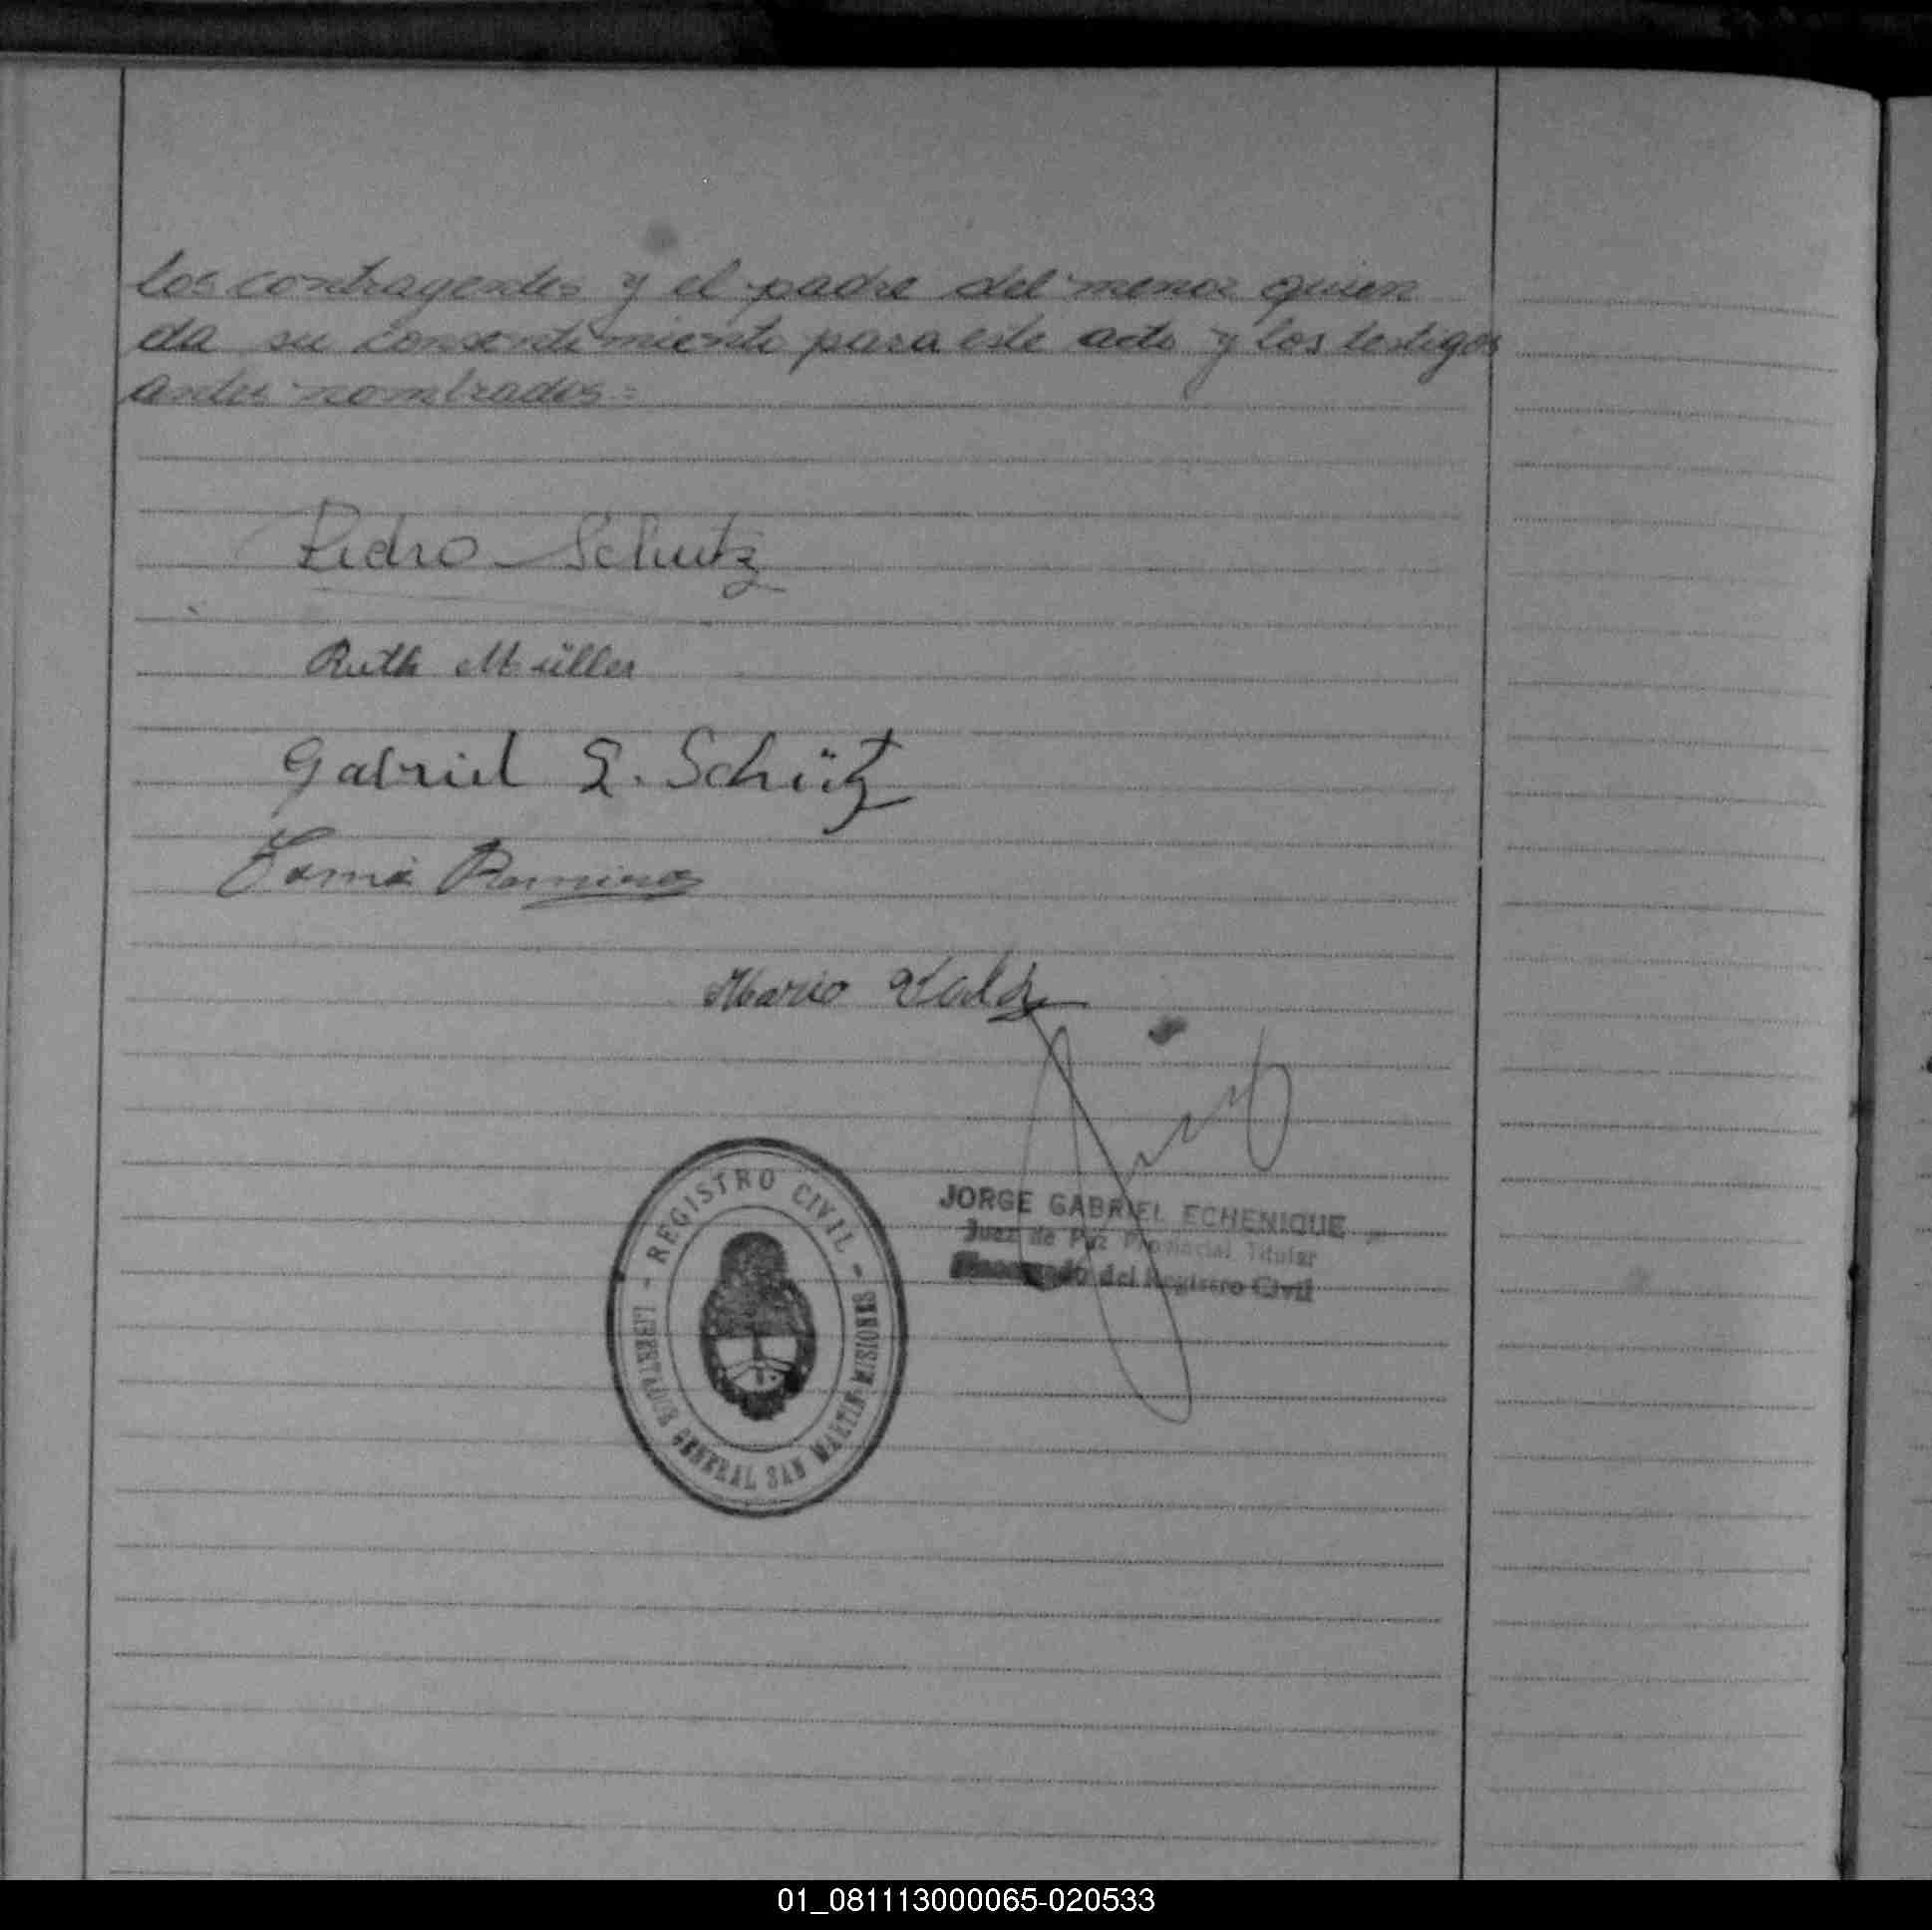 los contragentes y el padre del menor quien
da su consentimiento para este acto y los testigos
antes nombrados=
Pedro Schutz
Ruth Müller
Gabriel E. Schütz
Ramirez
Mario
- REGISTRO CIVIL -
LIBERTADOR GENERAL SAN MARTIN-MISIONES
JORGE GABRIEL ECHENIQUE
Juez de Paz Provincial Titular
del Registro Civil
01_081113000065-020533